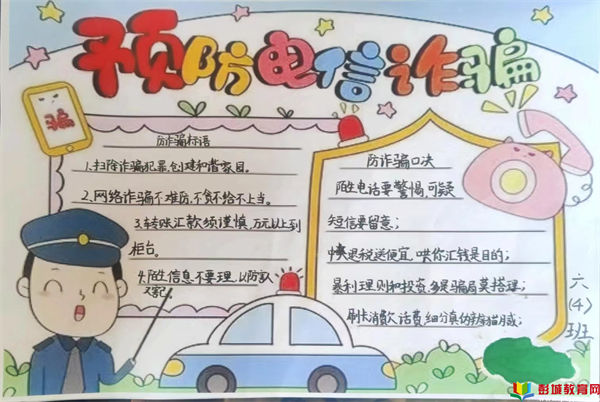 预防电信诈骗
骗
防诈骗标语
1.扫除诈骗犯罪,创建和谐家园。
2.网络诈骗不难防,不贪不给不上当。
3.转账汇款须谨慎,万元以上到
柜台。
4.陌生信息不要理,以防
防诈骗口决
陌生电话要警惕,可疑
短信要留意;
退税送便宜,哄你汇钱是目的;
暴利理则和投资,多是骗局莫搭理;
刷卡消费欠话费,细分真伪辨猫腻;
六
(4)
班
彭城教育网